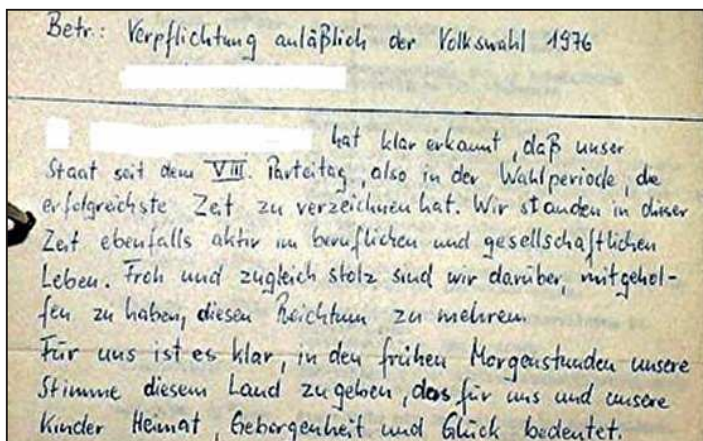 Betr.: Verpflichtung anläßlich der Volkswahl 1976
hat klar erkannt, daß unser
Staat seit dem VIII. Parteitag, also in der Wahlperiode, die
erfolgreichste Zeit zu verzeichnen hat. Wir standen in dieser
Zeit ebenfalls aktiv im beruflichen und gesellschaftlichen
Leben. Froh und zugleich stolz sind wir darüber, mitgehol-
fen zu haben, diesen Reichtum zu mehren.
Für uns ist es klar, in den frühen Morgenstunden unsere
Stimme diesem Land zu geben, das für uns und unsere
Kinder Heimat, Geborgenheit und Glück bedeutet.